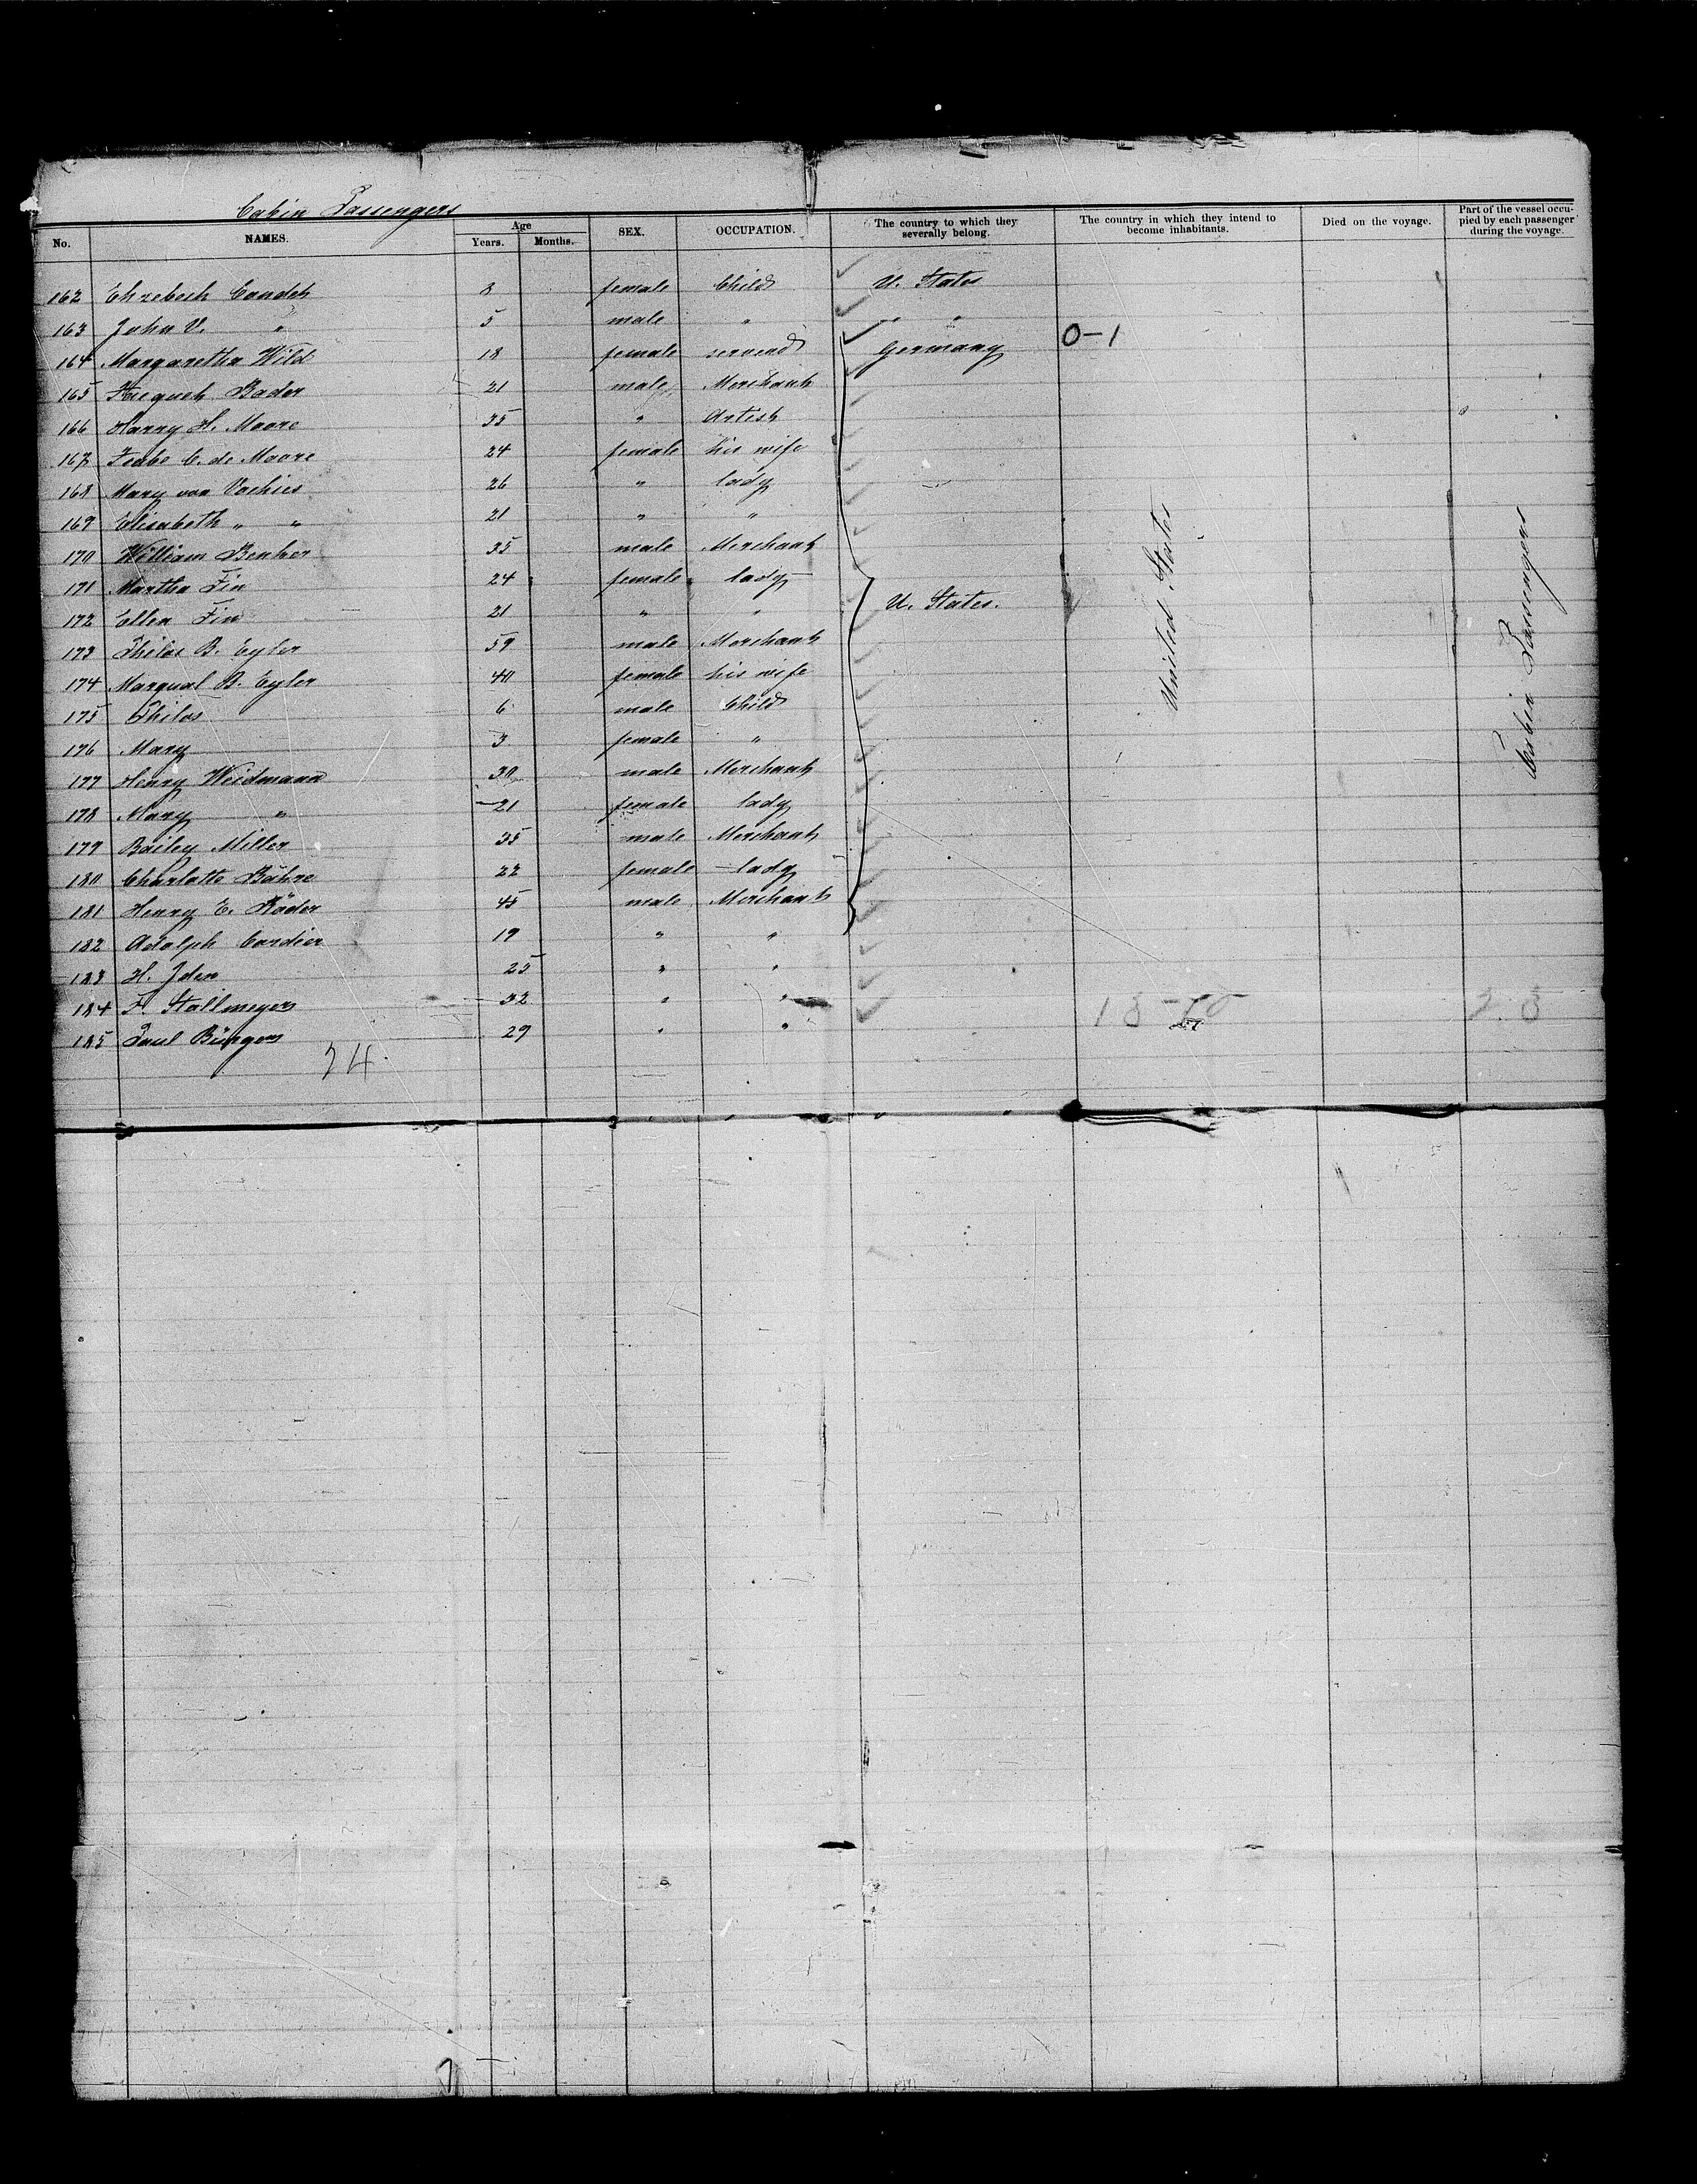 Cabin Passengers
No. NAMES. Age Years. Months. SEX. OCCUPATION. The country to which they severally belong. The country in which they intend to become inhabitants. Died on the voyage. Part of the vessel occupied by each passenger during the voyage.
162 8 female Child U. States
163 John V. " 5 male " " "
164 Margaretha Wild 18 female servend Germany 0-1
165 Bader 21 male Merchant
166 Harry H. Moore 35 " Artist
167 C. de Moore 24 female his wife
168 Mary von 26 " lady
169 Elisabeth " " 21 " "
170 William Benker 35 male Merchant
171 Martha Fin 24 female lady
172 Ellen Fin 21 " " U. States.
173 Philos B. Eyler 59 male Merchant
174 B. Eyler 40 female his wife
175 Philos 6 male Child
176 Mary 3 female "
177 Henry Weidmann 30 male Merchant
178 Mary " 21 female lady
179 Bailey Miller 35 male Merchant
180 Charlotte Bähre 22 female lady
181 Henry E. Röder 45 male Merchant
182 Adolph Cordier 19 " "
183 H. Iden 25 " "
184 F. Stallmeyer 32 " "
185 Paul Bürgers 29 " "
24
United States
Cabin Passengers